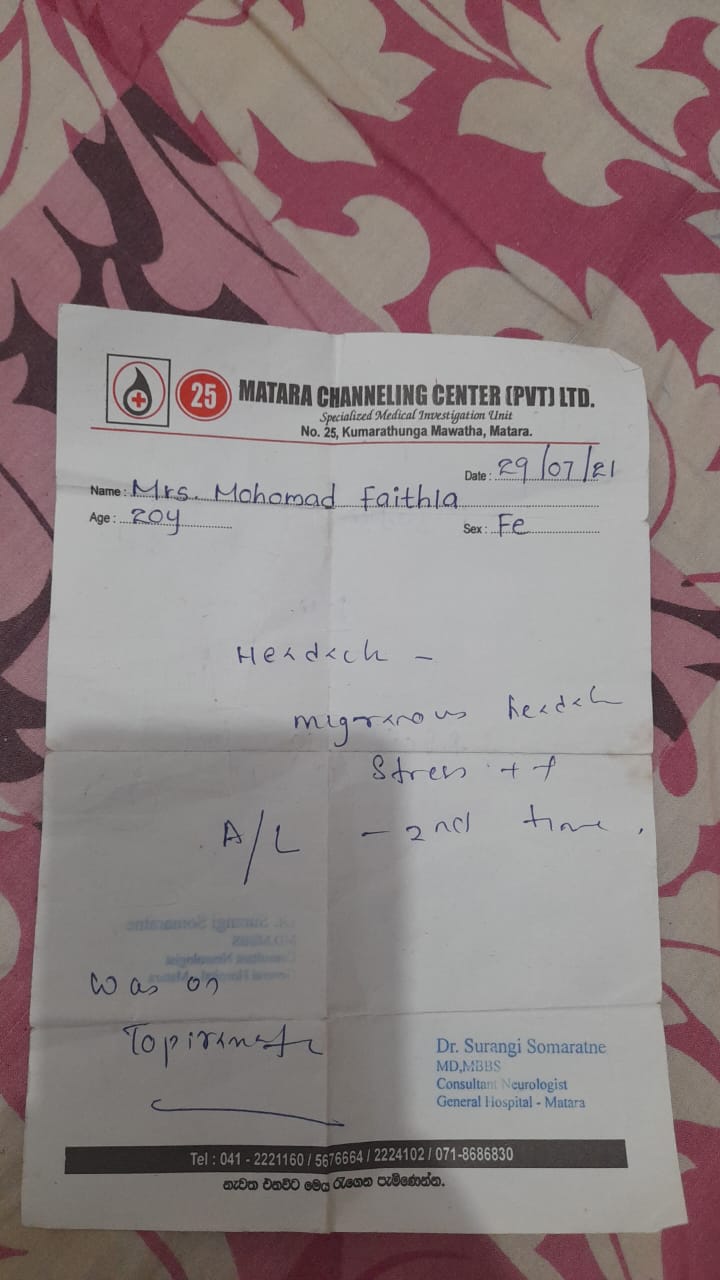 25 MATARA CHANNELING CENTER (PVT) LTD.
Specialized Medical Investigation Unit
No. 25, Kumarathunga Mawatha, Matara.
Date : 29/07/21
Name : Mrs. Mohomad Faithla
Age : 20y
Sex : Fe
Headach -
migranous headach
Stress ++
A/L - 2nd time.
Dr. Surangi Somaratne
MD,MBBS
Consultant Neurologist
General Hospital - Matara
was on
Topiramate
Dr. Surangi Somaratne
MD,MBBS
Consultant Neurologist
General Hospital - Matara
Tel : 041 - 2221160 / 5676664 / 2224102 / 071-8686830
නැවත එනවිට මෙය රැගෙන පැමිණෙන්න.